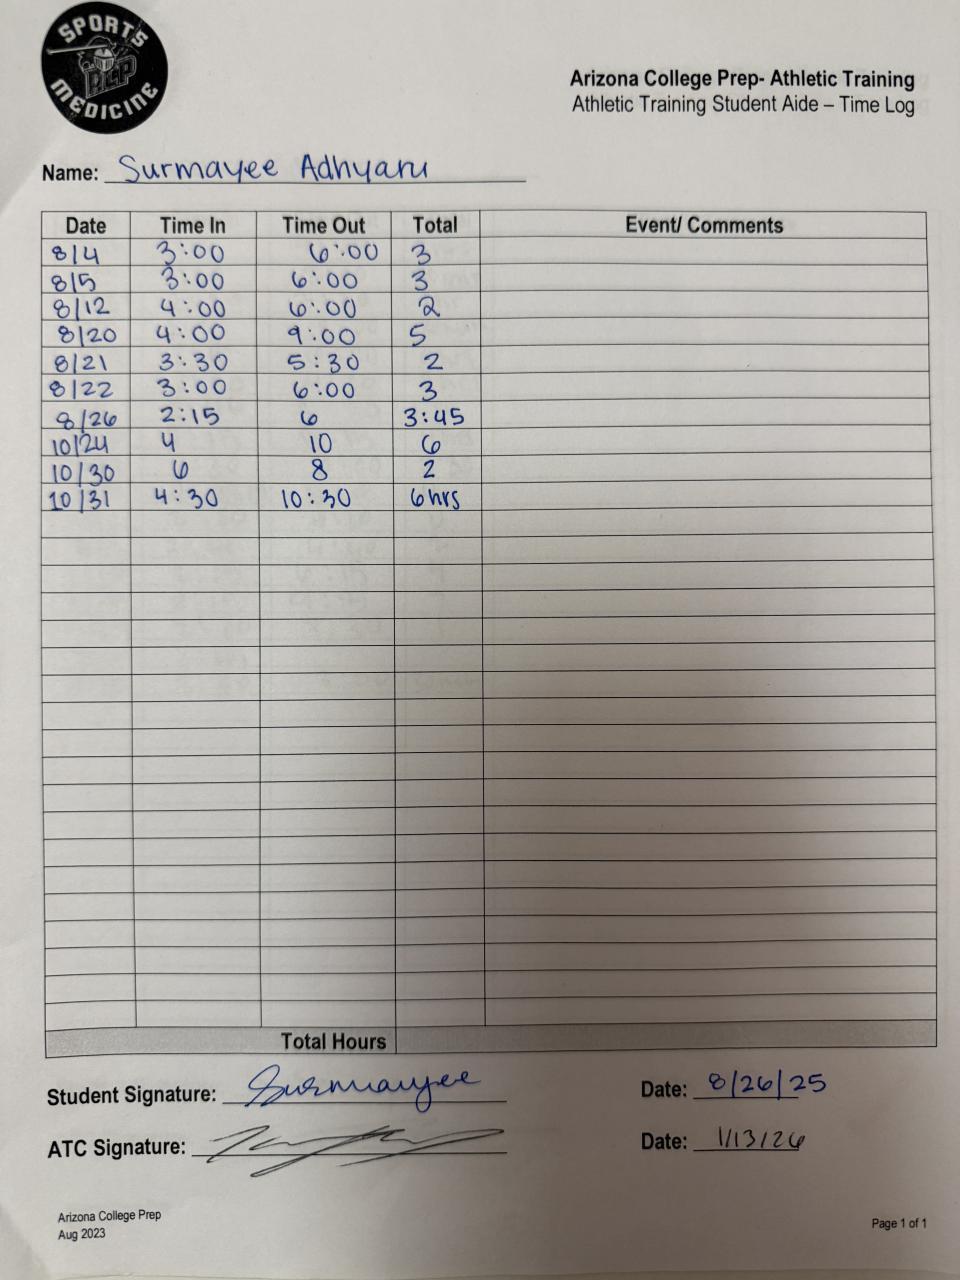 SPORTS
ACP
MEDICINE
Arizona College Prep- Athletic Training
Athletic Training Student Aide – Time Log
Name: Surmayee Adhyaru
Date Time In Time Out Total Event/ Comments
8/4 3:00 6:00 3
8/5 3:00 6:00 3
8/12 4:00 6:00 2
8/20 4:00 9:00 5
8/21 3:30 5:30 2
8/22 3:00 6:00 3
8/26 2:15 6 3:45
10/24 4 10 6
10/30 6 8 2
10/31 4:30 10:30 6hrs
Total Hours
Student Signature: Surmayee Date: 8/26/25
ATC Signature: Date: 1/13/26
Arizona College Prep
Aug 2023
Page 1 of 1